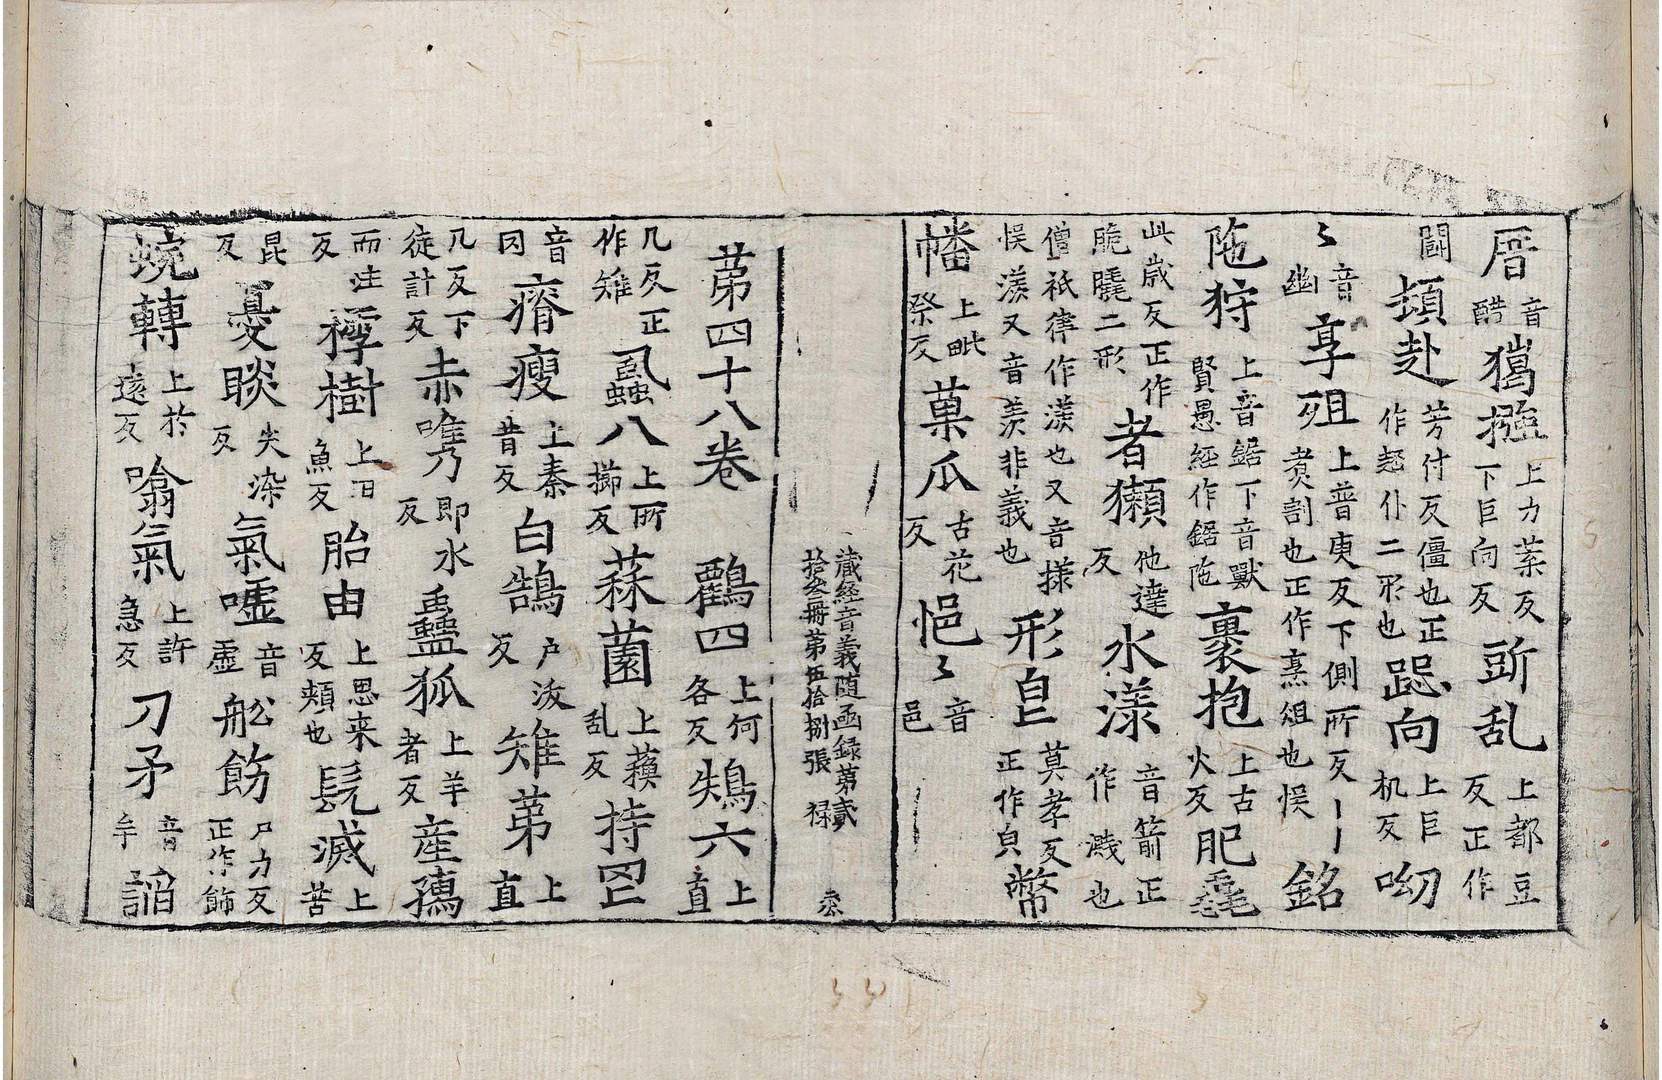 厝音醋猲㨷上力葉反下巨向反䛠乱上都豆反正作
鬪頓赴芳付反僵也正作趍仆二形也跽向上巨机反呦
〻音幽享殂上普庚反下側所反丨丨煑割也正作烹俎也悮銘
陁狩上音鋸下音獸賢愚經作鋸陁裹抱上古火反肥毳
此歲反正作脆膬二形者獺他達反水漾音箭正作濺也
僧祇律作漾也又音㨾悮漾又音羕非義也形皃莫孝反正作皃幣
幡上毗祭反菓瓜古花反悒〻音邑
藏經音義随函録第貳拾叁冊第伍拾捌張 禄
第四十八卷 鸖四上何各反鴩六上直
几反正作雉虱八上所擳反蒜薗上蘓乱反持罒
音冈瘠瘦上秦昔反白鵠戸沃反雉苐上直
几反下徒計反赤㕠即水反蠱狐上羊者反産㺐
而注反㨹樹上汨魚反胎由上思来反頬也髡滅上苦
昆反憂睒失染反氣嘘音虚舩飭尸力反正作餝
蜿轉上於遠反噏氣上許急反刀矛音牟謟